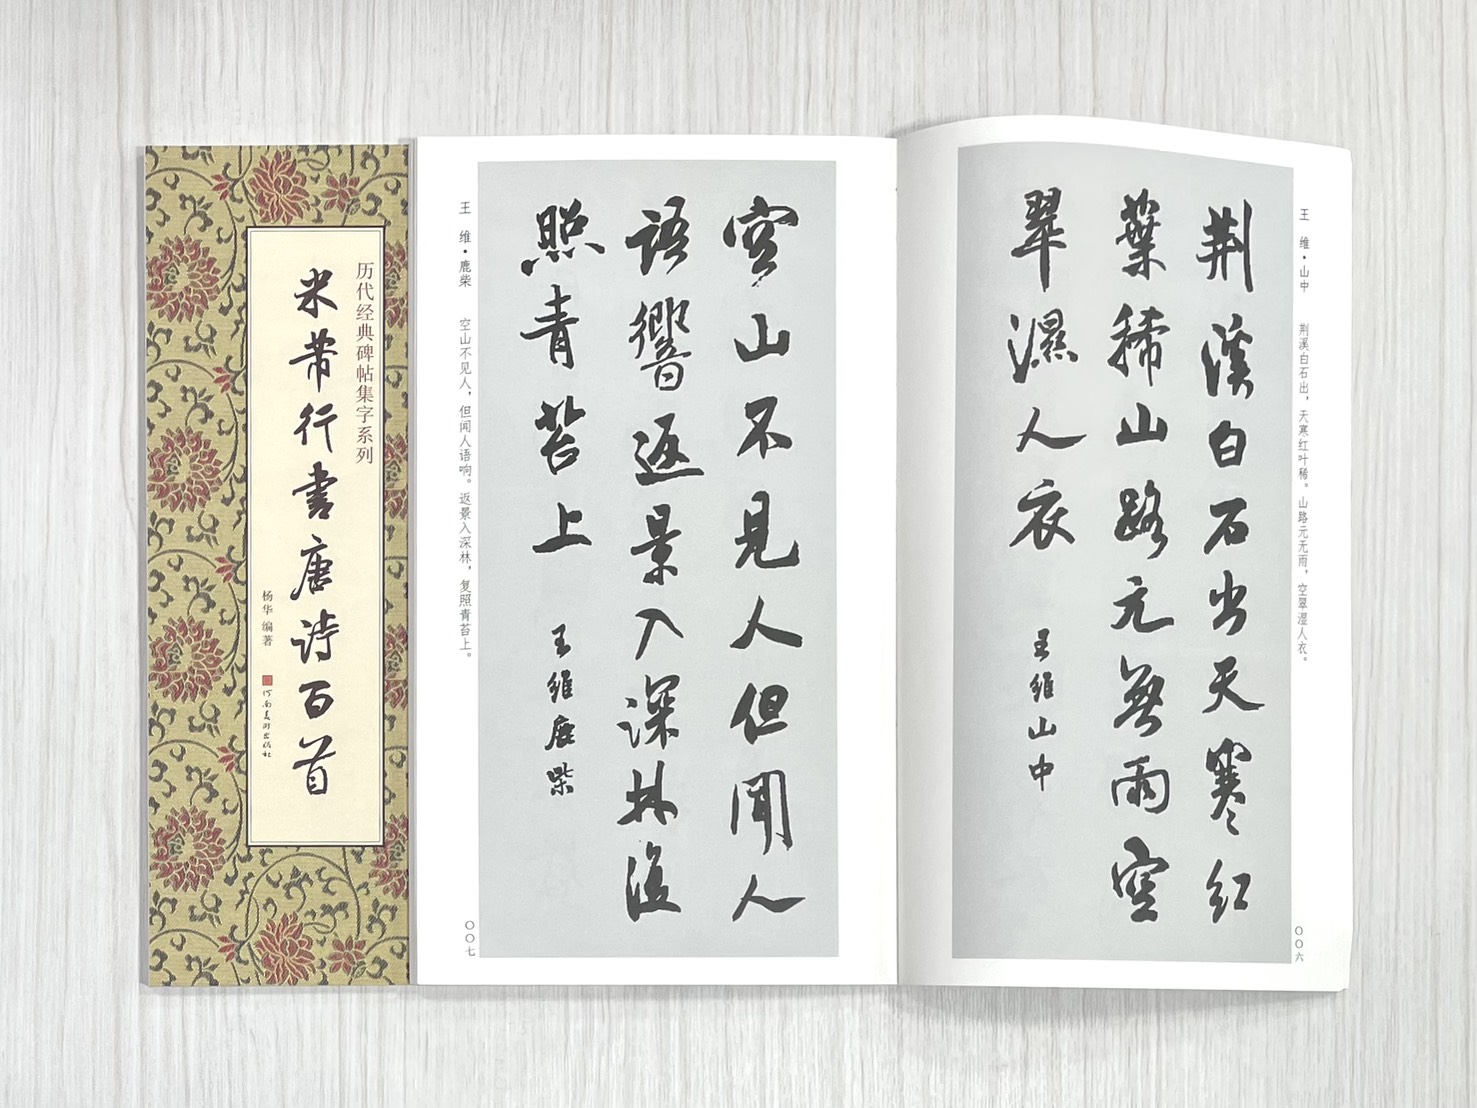 历代经典碑帖集字系列
米芾行書唐诗百首
杨华 编著
河南美术出版社
王维·山中 荆溪白石出，天寒红叶稀。山路元无雨，空翠湿人衣。
荆溪白石出天寒红
葉稀山路元無雨空
翠濕人衣
王維山中
〇〇六
王维·鹿柴 空山不见人，但闻人语响。返景入深林，复照青苔上。
空山不見人但聞人
語響返景入深林復
照青苔上
王維鹿柴
〇〇七